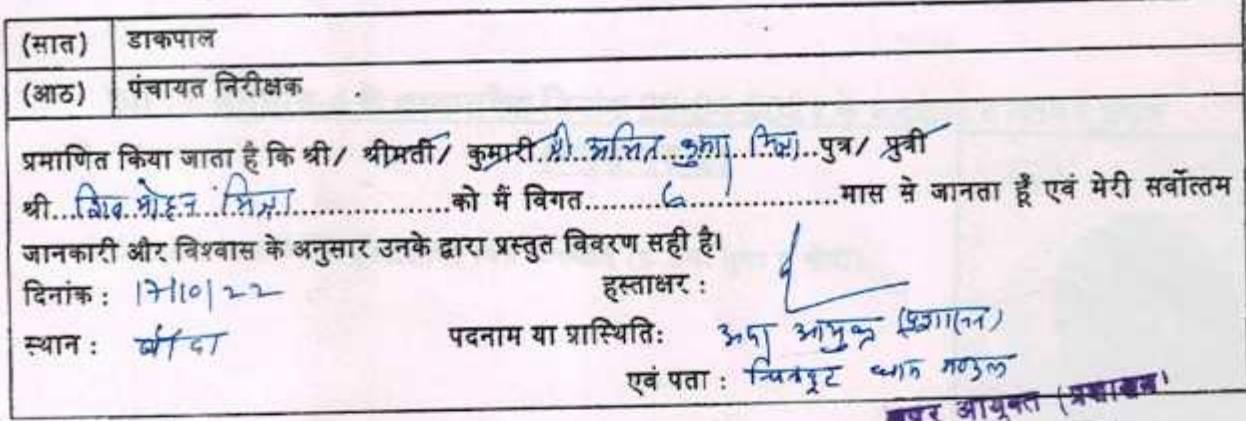 (सात) डाकपाल
(आठ) पंचायत निरीक्षक
प्रमाणित किया जाता है कि श्री/ श्रीमती/ कुमारी..श्री..अजित..कुमार..मिश्रा..पुत्र/ पुत्री
श्री...शिव मोहन मिश्रा..................को मैं विगत.........6...............मास से जानता हूँ एवं मेरी सर्वोत्तम
जानकारी और विश्वास के अनुसार उनके द्वारा प्रस्तुत विवरण सही है।
दिनांक : 17/10/22 हस्ताक्षर :
स्थान : बाँदा पदनाम या प्रास्थिति: अपर आयुक्त (प्रशासन)
एवं पता : चित्रकूट धाम मण्डल
अपर आयुक्त (प्रशासन)